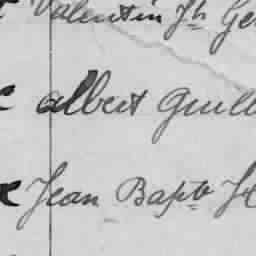 Valentin Jh Ge
albert Guill
Jean Bapte H